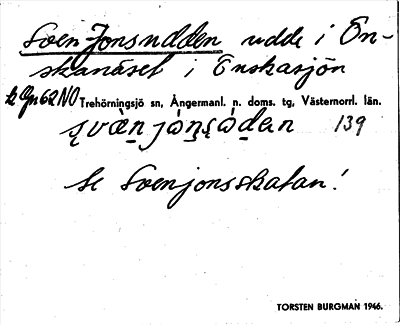 Sven Jonsudden udde i Ön-
skanäset i Önskasjön
k Gp 62 NO Trehörningsjö sn, Ångermanl. n. doms. tg, Västernorrl. län.
139
se Svenjonsskatan!
TORSTEN BURGMAN 1946.